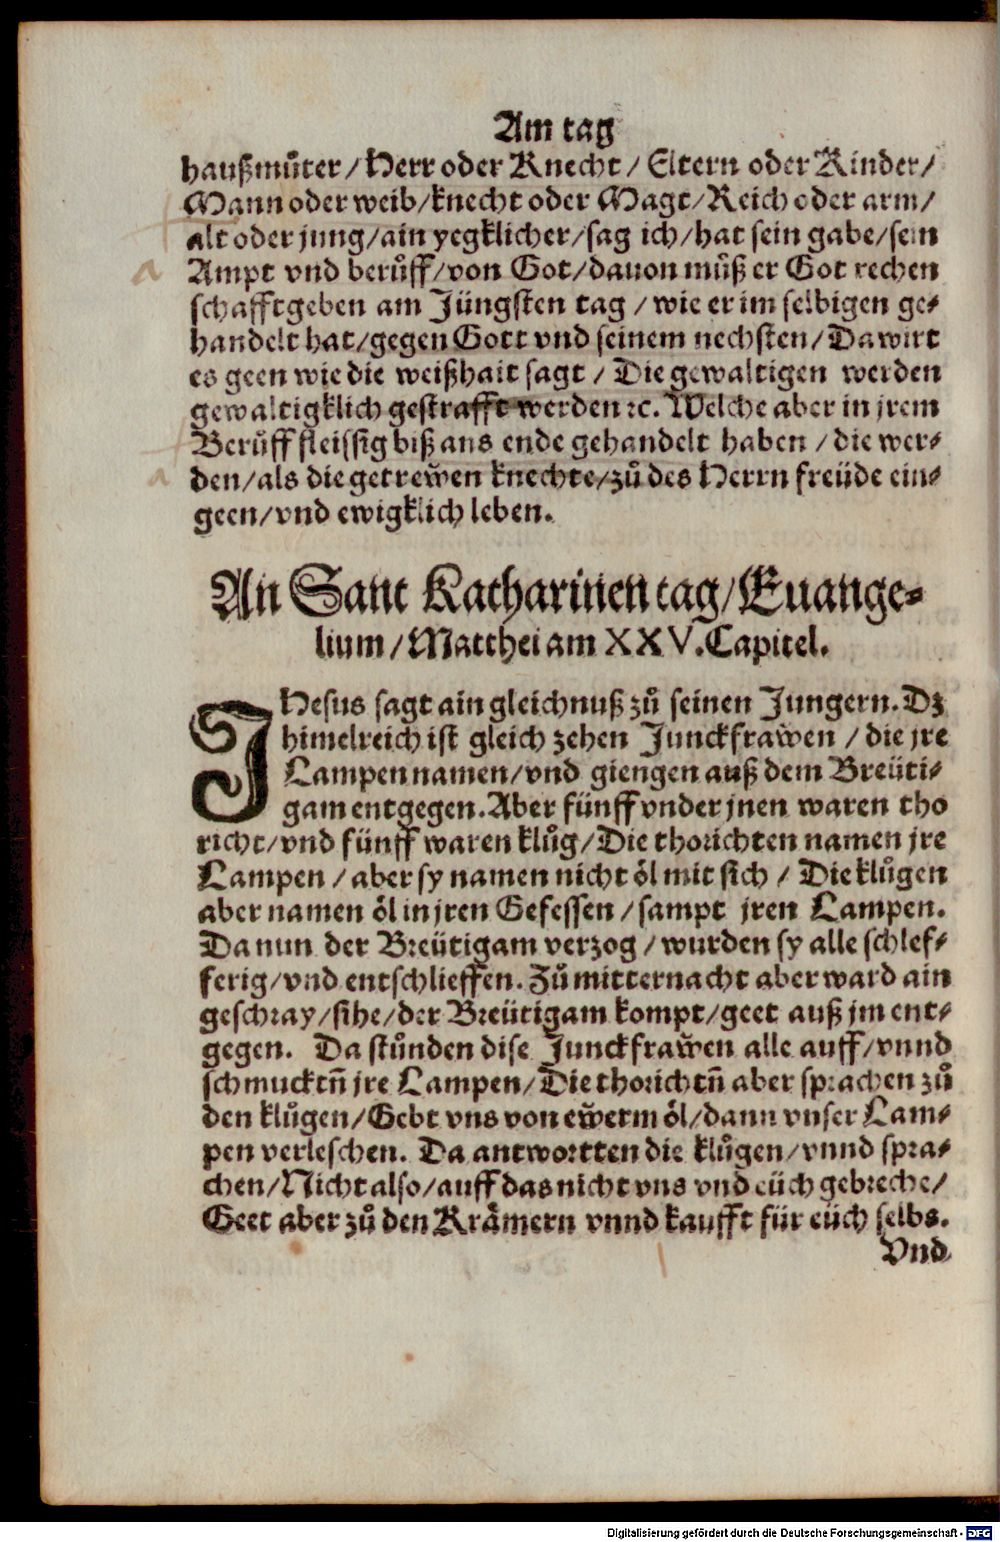 Am tag
haußmůter/Herr oder Knecht/Eltern oder Kinder/
Mann oder weib/knecht oder Magt/Reich oder arm/
alt oder jung/ain yegklicher/sag ich/hat sein gabe/sein
Ampt vnd berůff/von Got/dauon můß er Got rechen
schafft geben am Jüngsten tag/wie er im selbigen ge⸗
handelt hat/gegen Gott vnd seinem nechsten/Da wirt
es geen wie die weißhait sagt/Die gewaltigen werden
gewaltigklich gestrafft werden ꝛc. Welche aber in jrem
Berůff fleissig biß ans ende gehandelt haben/die wer⸗
den/als die getrewͤen knechte/zů des Herrn freüde ein⸗
geen/vnd ewigklich leben.
An Sant Katharinen tag/Euange⸗
lium/Matthei am XXV. Capitel.
JHesus sagt ain gleichnuß zů seinen Jungern. Dz
himelreich ist gleich zehen Junckfrawͤen/die jre
Lampen namen/vnd giengen auß dem Breüti⸗
gam entgegen. Aber fünff vnder jnen waren tho
richt/vnd fünff waren klůg/Die thorichten namen jre
Lampen/aber sy namen nicht öl mit sich/Die klůgen
aber namen öl in jren Gefessen/sampt jren Lampen.
Da nun der Breütigam verzog/wurden sy alle schlef⸗
ferig/vnd entschlieffen. Zů mitternacht aber ward ain
geschray/sihe/der Breütigam kompt/geet auß jm ent⸗
gegen. Da stůnden dise Junckfrawͤen alle auff/vnnd
schmucktn̄ jre Lampen/Die thorichtn̄ aber sprachen zů
den klůgen/Gebt vns von ewͤerm öl/dann vnser Lam⸗
pen verleschen. Da antwortten die klůgen/vnnd spra⸗
chen/Nicht also/auff das nicht vns vnd eüch gebreche/
Geet aber zů den Krämern vnnd kaufft für eüch selbs.
Vnd
Digitalisierung gefördert durch die Deutsche Forschungsgemeinschaft - DFG